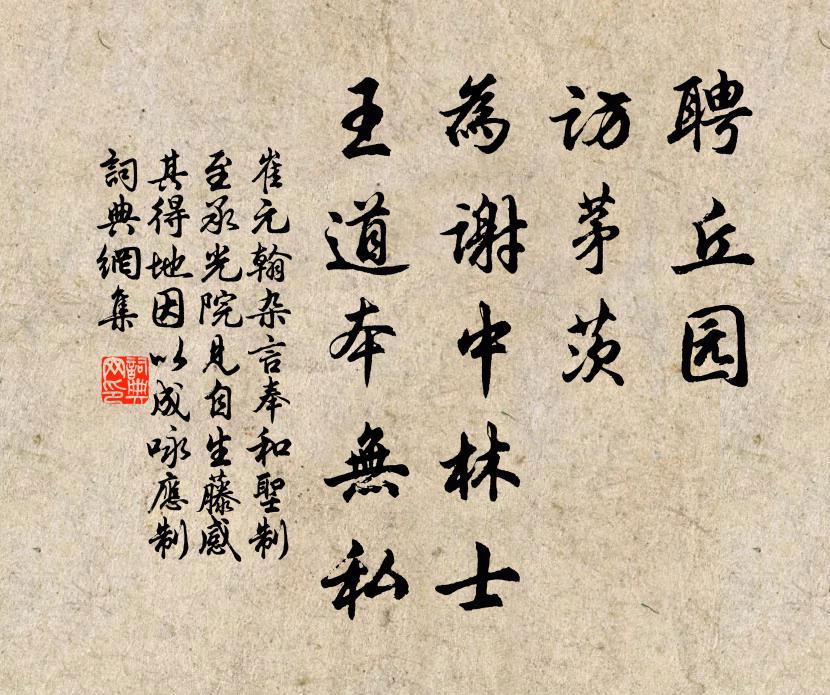 聘丘园
访茅茨
為謝中林士
王道本無私
崔元翰杂言奉和聖制
至承光院見自生藤感
其得地因以成咏應制
詞典網集
詞典
网印